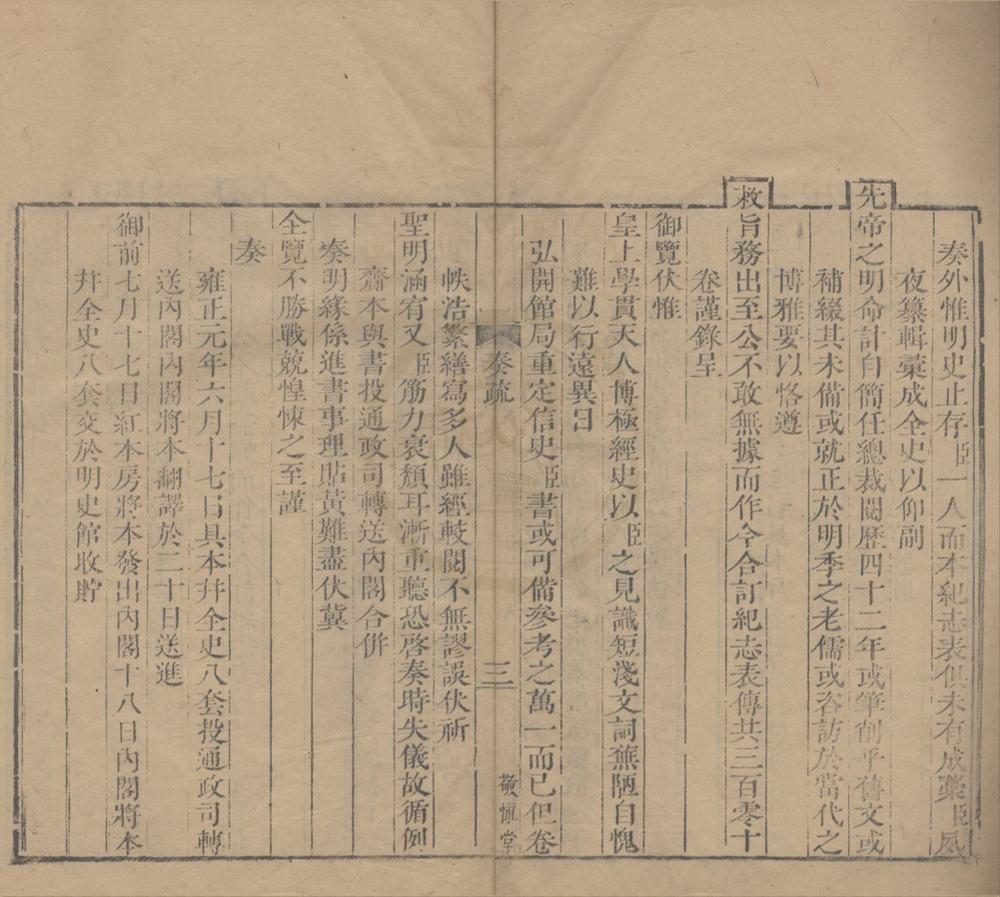 奏外惟明史止存臣一人而本紀志表俱未有成藁臣夙
夜纂輯藁成全史以仰副
先帝之明命計自簡任總裁閱歷四十二年或筆削乎舊文或
補綴其未備或就正於明季之老儒或咨訪於當代之
博雅要以恪遵
敕旨務出至公不敢無據而作今合訂紀志表傳共三百零十
卷謹錄呈
御覽伏惟
皇上學貫天人博極經史以臣之見識短淺文詞蕪陋自愧
難以行遠異日
弘開館局重定信史臣書或可備參考之萬一而已但卷
奏疏
三
敬愼堂
帙浩繁繕寫多人雖經較閱不無謬誤伏祈
聖明涵宥又臣筋力衰頹耳漸重聽恐啓奏時失儀故循例
齎本與書投通政司轉送內閣合併
奏明緣係進書事理貼黃難盡伏冀
全覽不勝戰兢惶悚之至謹
奏
雍正元年六月十七日具本幷全史八套投通政司轉
送內閣內閣將本翻譯於二十日送進
御前七月十七日紅本房將本發出內閣十八日內閣將本
幷全史八套交於明史館收貯